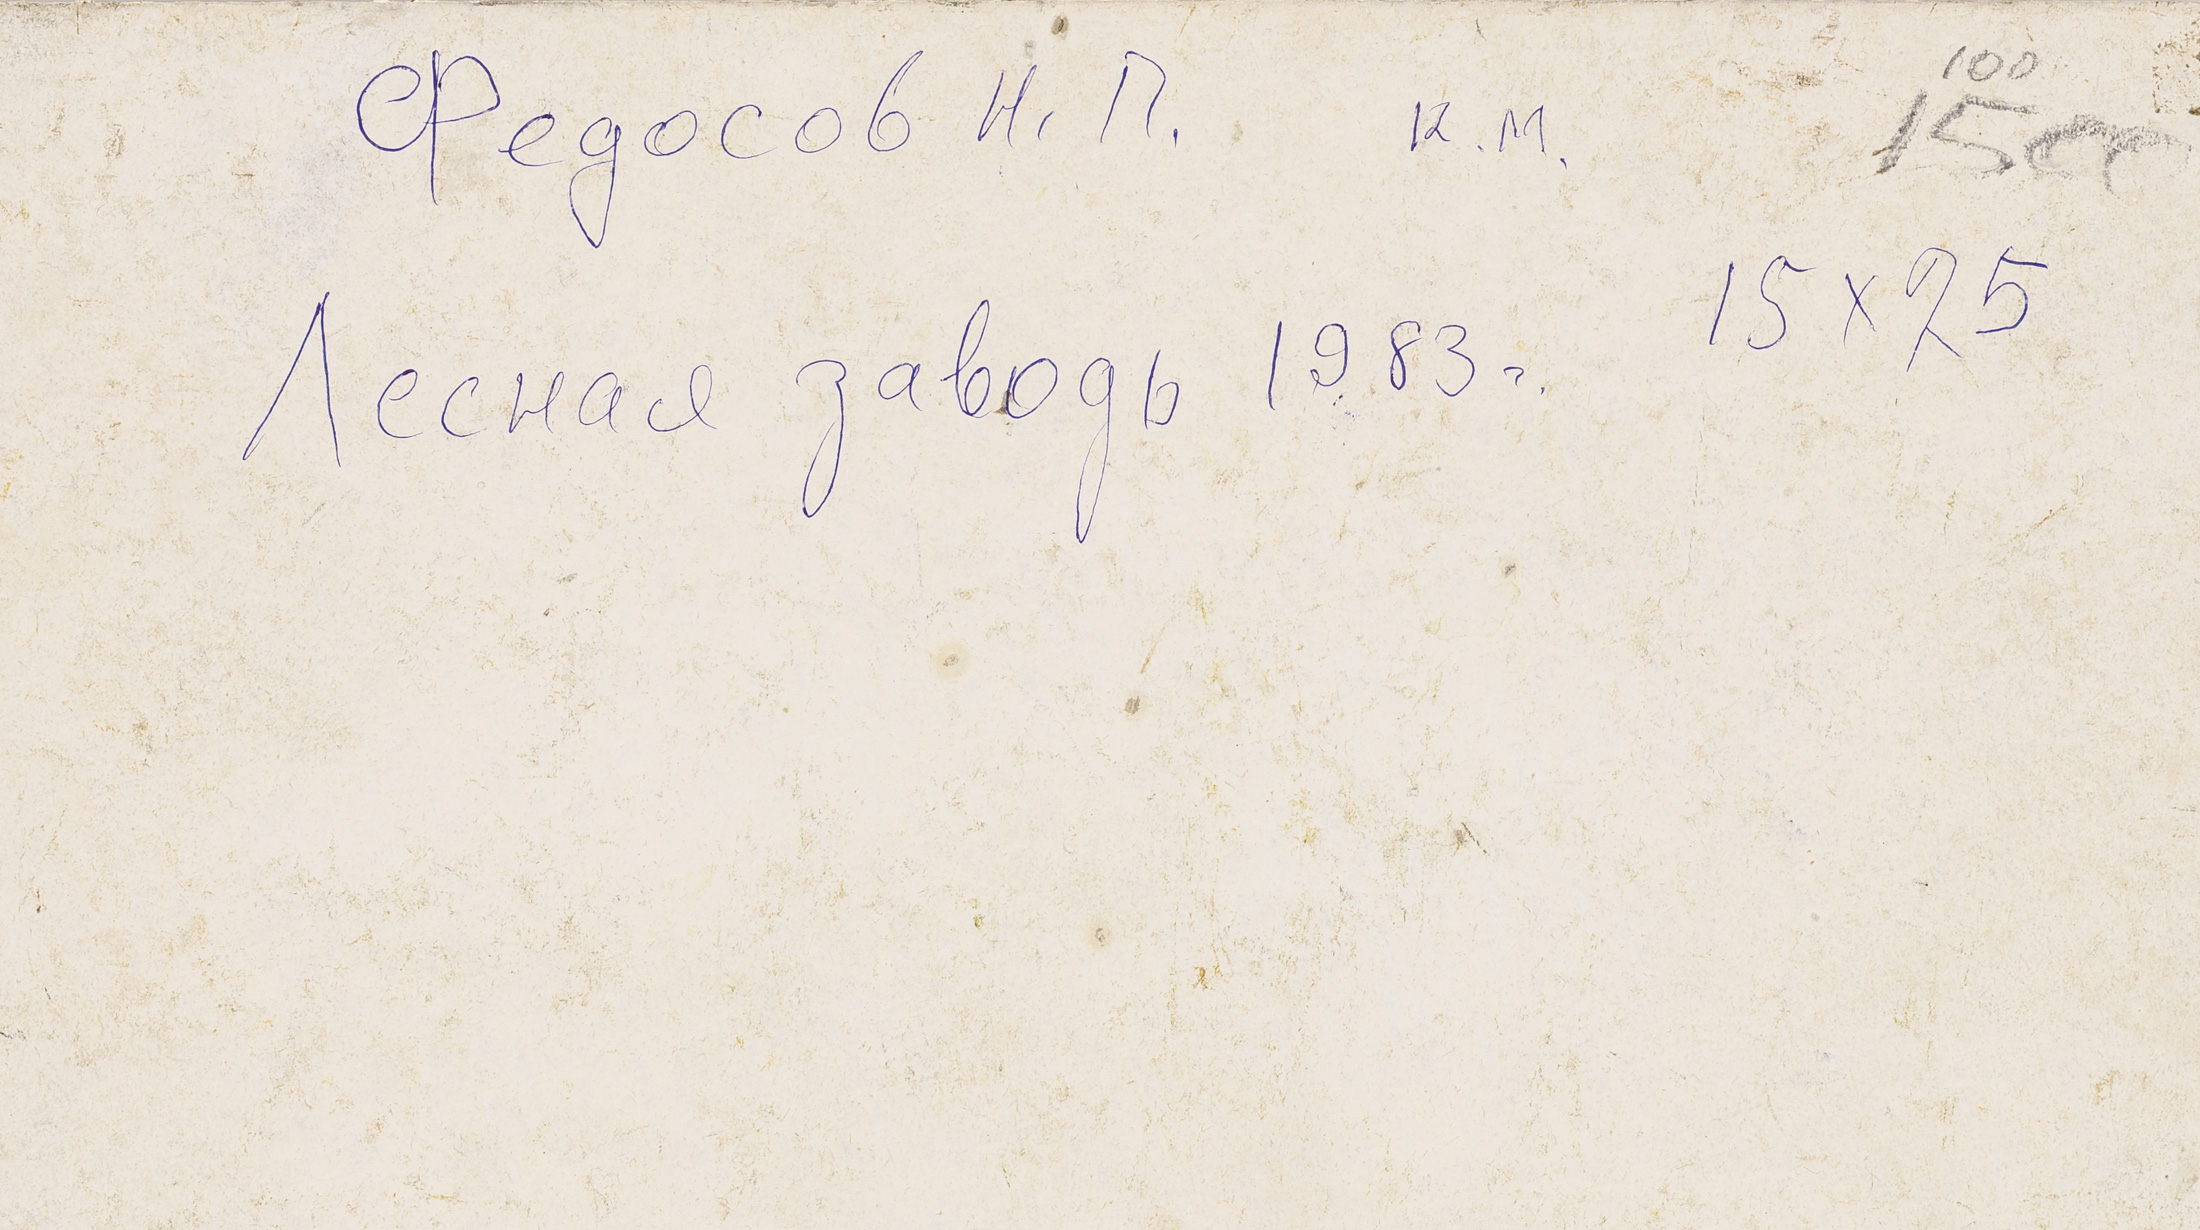 Федосов Н. П. к.м.
100
Лесная заводь 1983 г. 15x25